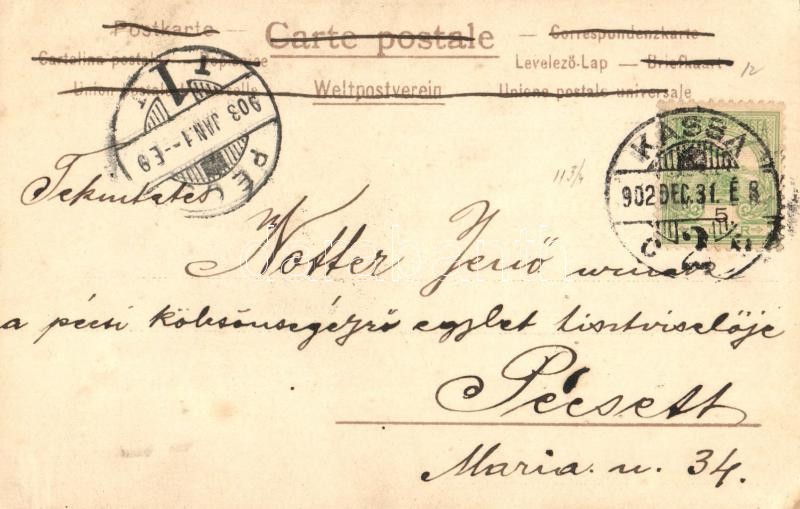 Postkarte — Carte postale — Correspondenzkarte
Cartolina postale — Levelező-Lap — Briefkaart
Union postale Weltpostverein Unione postale universale
12
PÉCS
903 JAN. 1 - E 9
1
KASSA
902 DEC. 31. É 8
5
113/4
Tekintetes
Notter Jenő urnak
a pécsi kölcsönsegéyző egylet tisztviselője
Pécsett
Maria. u. 34.